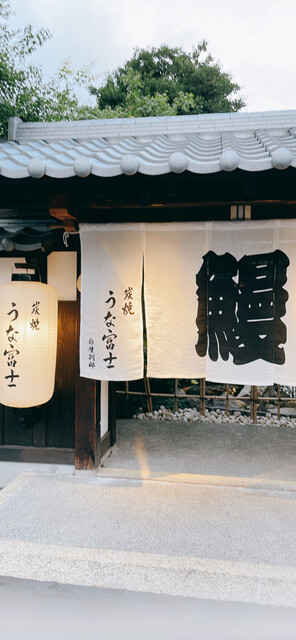 炭焼
うな富士
炭焼
うな富士
白壁別邸
鰻